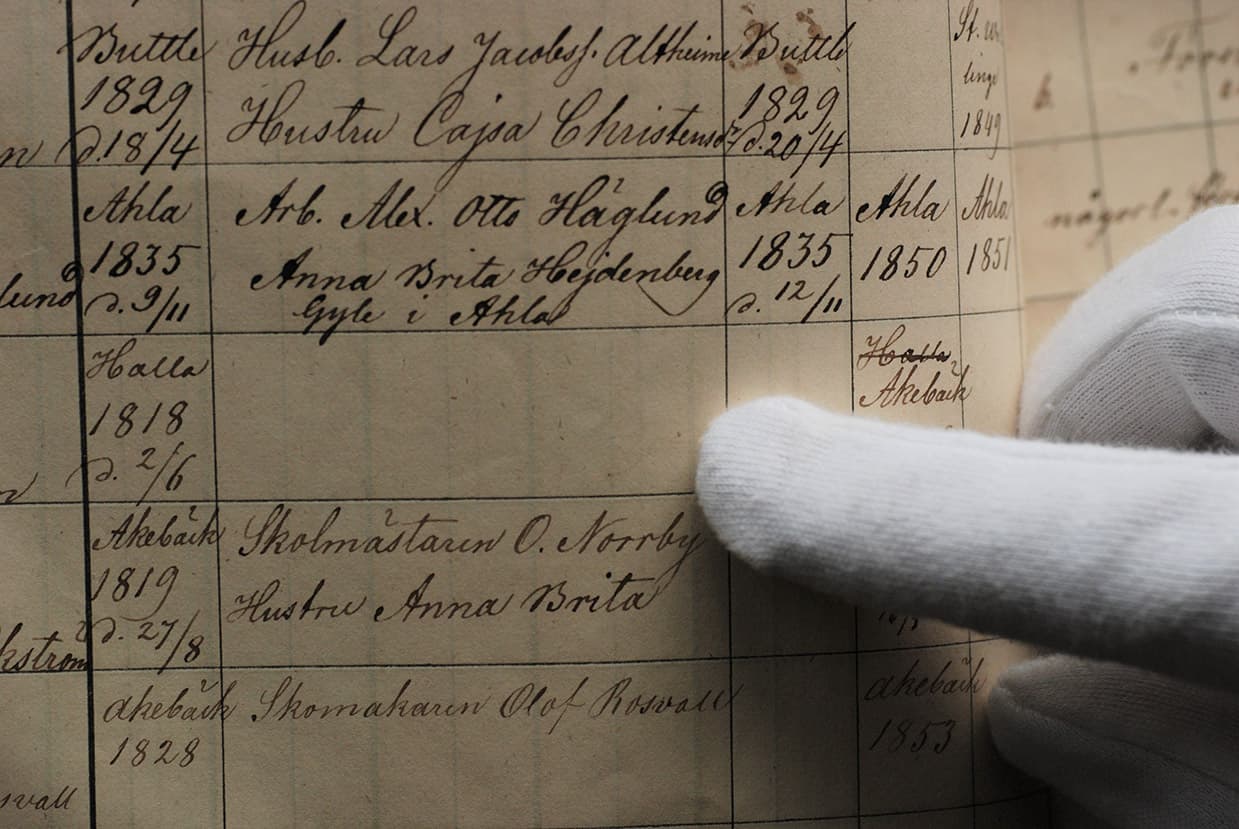 Buttle Husb. Lars Jacobss. Altheime Buttle St.
1829 Hustru Cajsa Christensdr 1829 linge
d. 18/4 d. 20/4 1849
Ahla Arb. Alex. Otto Häglund Ahla Ahla Ahla
1835 Anna Brita Hejdenberg 1835 1850 1851
lund d. 9/11 Gyle i Ahla d. 12/11
Halla Halla
1818 Akebäck
d. 2/6
Akebäck Skolmästaren O. Norrby
1819 Hustru Anna Brita
d. 27/8
kstrom
Akebäck Skomakaren Olof Rosvall Akebäck
1828 1853
svall